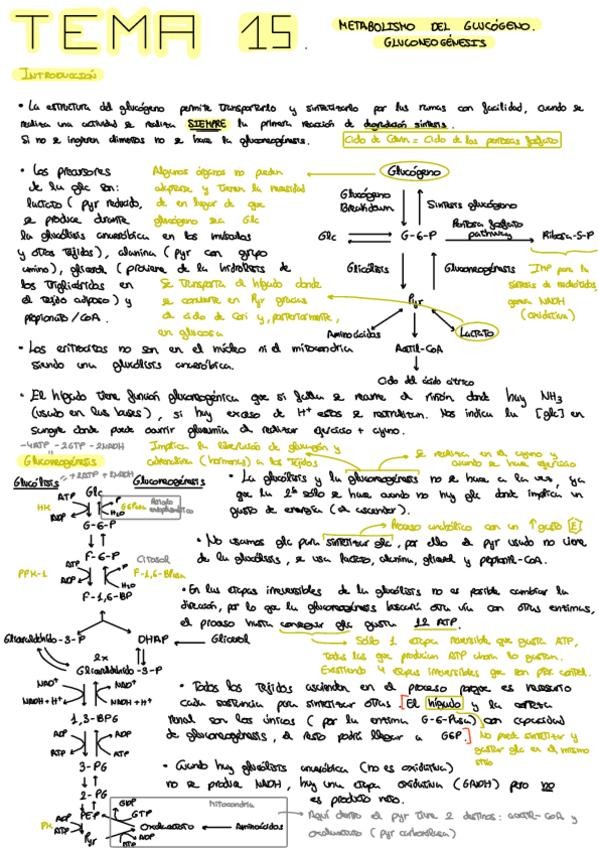 TEMA 15.
METABOLISMO DEL GLUCÓGENO.
GLUCONEOGÉNESIS
INTRODUCCIÓN
• La estructura del glucógeno permite transportarlo y sintetizarlo por las ramas con facilidad, cuando se
realiza una actividad se realiza SIEMPRE la primera reacción de degradación síntesis.
Si no se ingieren alimentos no se hace la gluconeogénesis.
Ciclo de Calvin = Ciclo de las pentosas fosfato
• Los precursores
de la glc son:
lactato (pyr reducido,
se produce durante
la glucólisis anaeróbica en los músculos
y otros tejidos), alanina (pyr con grupo
amino), glicerol (proviene de la hidrólisis de
los triglicéridos en
el tejido adiposo) y
propionato/CoA.
Algunos órganos no pueden
adaptarse y tienen la necesidad
de en lugar de que
glucógeno sea Glc
Se transporta al hígado donde
se convierte en Pyr gracias
al ciclo de Cori y, posteriormente,
en glucosa
Glucógeno
Glucógeno
Breakdown
Síntesis glucógeno
Glc
G-6-P
Pentosa fosfato
pathway
Ribosa-5-P
Glicólisis
Gluconeogénesis
Imp para la
síntesis de nucleótidos,
genera NADH
(oxidativa)
Pyr
Aminoácidos
Acetil-CoA
Lactato
Ciclo del ácido cítrico
• Los eritrocitos no son en el núcleo ni el mitocondria
siendo una glucólisis anaeróbica.
• El hígado tiene función gluconeogénica que si falla se recurre al riñón donde hay NH3
(usado en las bases), si hay exceso de H+ estos se neutralizan. Nos indica la [glc] en
sangre donde puede ocurrir glucemia al realizar ejercicio + ayuno.
-4ATP -2GTP -2NADH
Gluconeogénesis
Implica la liberación de glucagón y
adrenalina (hormonas) a los tejidos
se realiza en el ayuno y
cuando se hace ejercicio
Glucólisis
+2ATP +2NADH
Gluconeogénesis
HK
ATP
ADP
Glc
P
H2O
G6Pasa
Retículo
endoplasmático
G-6-P
F-6-P
PFK-1
ATP
ADP
P
H2O
Citosol
F-1,6-BPasa
F-1,6-BP
Gliceraldehído-3-P
DHAP
Glicerol
2x
Gliceraldehído-3-P
NAD+
NADH+H+
NAD+
NADH+H+
1,3-BPG
ADP
ATP
ADP
ATP
3-PG
2-PG
PEP
GDP
GTP
PK
ADP
ATP
Pyr
Mitocondria
Oxalacetato
Aminoácidos
ADP
ATP
• La glucólisis y la gluconeogénesis no se hace a la vez, ya
que la 2ª sólo se hace cuando no hay glc donde implica un
gasto de energía (al ascender).
Proceso anabólico con un ↑ gasto E
• No usamos glc para sintetizar glc, por ello el pyr usado no viene
de la glucólisis, se usa lactato, alanina, glicerol y propionil-CoA.
• En las etapas irreversibles de la glucólisis no es posible cambiar la
dirección, por lo que la gluconeogénesis buscará otra vía con otras enzimas,
el proceso hasta conseguir glc gasta 12 ATP.
Sólo 1 etapa reversible que gasta ATP,
todas las que producían ATP ahora lo gastan.
Existiendo 4 etapas irreversibles que son pto control.
• Todos los tejidos ascienden en el proceso porque es necesario
cada sustancia para sintetizar otras. [El hígado y la corteza
renal son los únicos (por la enzima G-6-Pasa) con capacidad
de gluconeogénesis, el resto podrá llegar a G6P.]
No puede sintetizar y
gastar glc en el mismo
sitio
• Cuando hay glucólisis anaeróbica (no es oxidativa)
no se produce NADH, hay una etapa oxidativa (GADH) pero no
es producto neto.
Aquí dentro el pyr tiene 2 destinos: acetil-CoA y
oxalacetato (pyr carboxilasa)